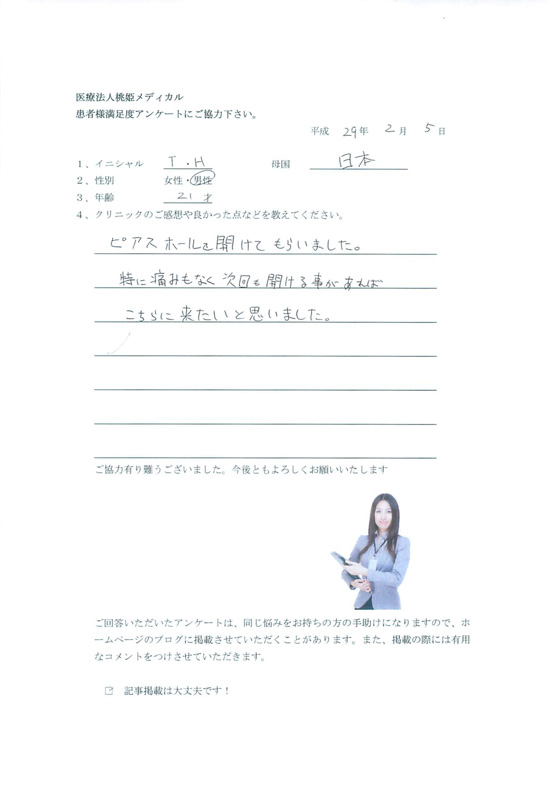 医療法人桃姫メディカル
患者様満足度アンケートにご協力下さい。
平成 29年 2月 5日
1、イニシャル T・H 母国 日本
2、性別 女性・男性
3、年齢 21才
4、クリニックのご感想や良かった点などを教えてください。
ピアスホールを開けてもらいました。
特に痛みもなく次回も開ける事があれば
こちらに来たいと思いました。
ご協力有り難うございました。今後ともよろしくお願いいたします
ご回答いただいたアンケートは、同じ悩みをお持ちの方の手助けになりますので、ホ
ームページのブログに掲載させていただくことがあります。また、掲載の際には有用
なコメントをつけさせていただきます。
☑ 記事掲載は大丈夫です！